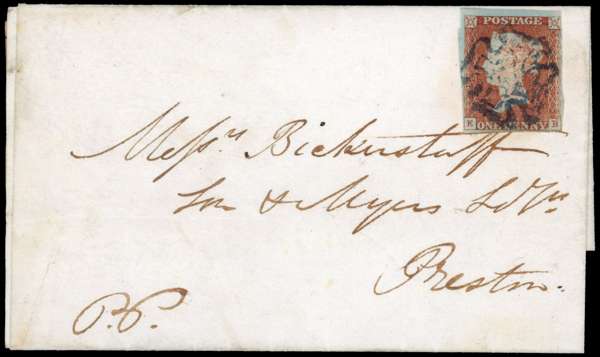 POSTAGE
K B
ONE PENNY
Messrs Bickerstaff
Son & Myers
Preston
P.P.